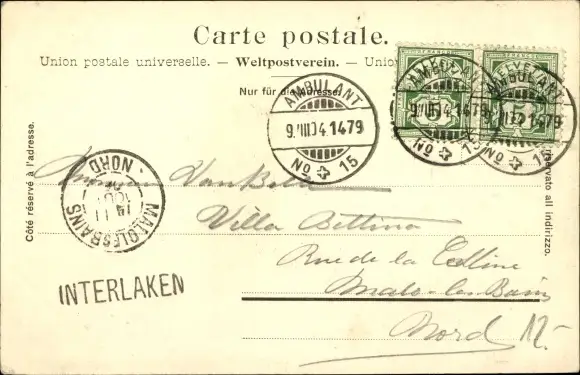 Carte postale.
Union postale universelle. — Weltpostverein. — Unio
Nur für die Adresse.
AMBULANT
9.VIII.04.1479
No 15
AMBULANT
9.VIII.04.1479
No 15
AMBULANT
9.VIII.04.1479
No 15
Côté réservé à l'adresse.
riservato all indirizzo.
MALO-LES-BAINS
NORD
INTERLAKEN
Villa Bettina
Rue de la Colline
Malo-les-Bains
Nord
12.-